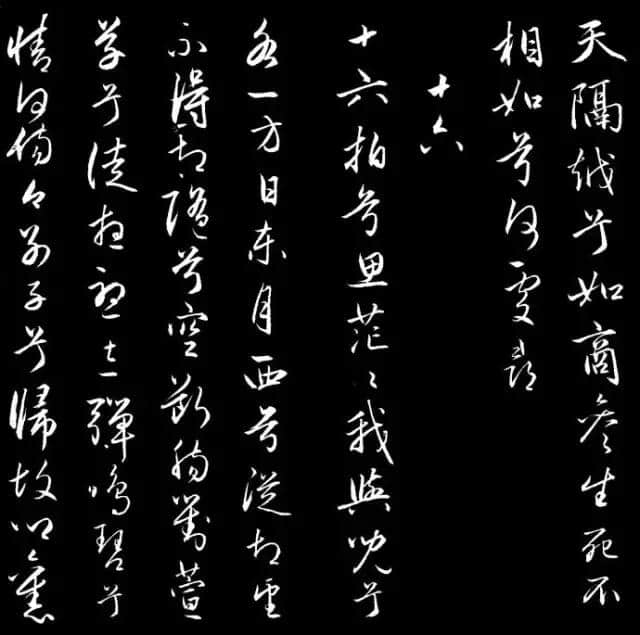 天隔越兮如商參生死不
相如兮何處尋
十六
十六拍兮思茫々我與兒兮
各一方日東月西兮從相望
不得相隨兮空斷腸對萱
草兮徒想憂忘彈鳴琴兮
情何傷今別子兮歸故鄉舊